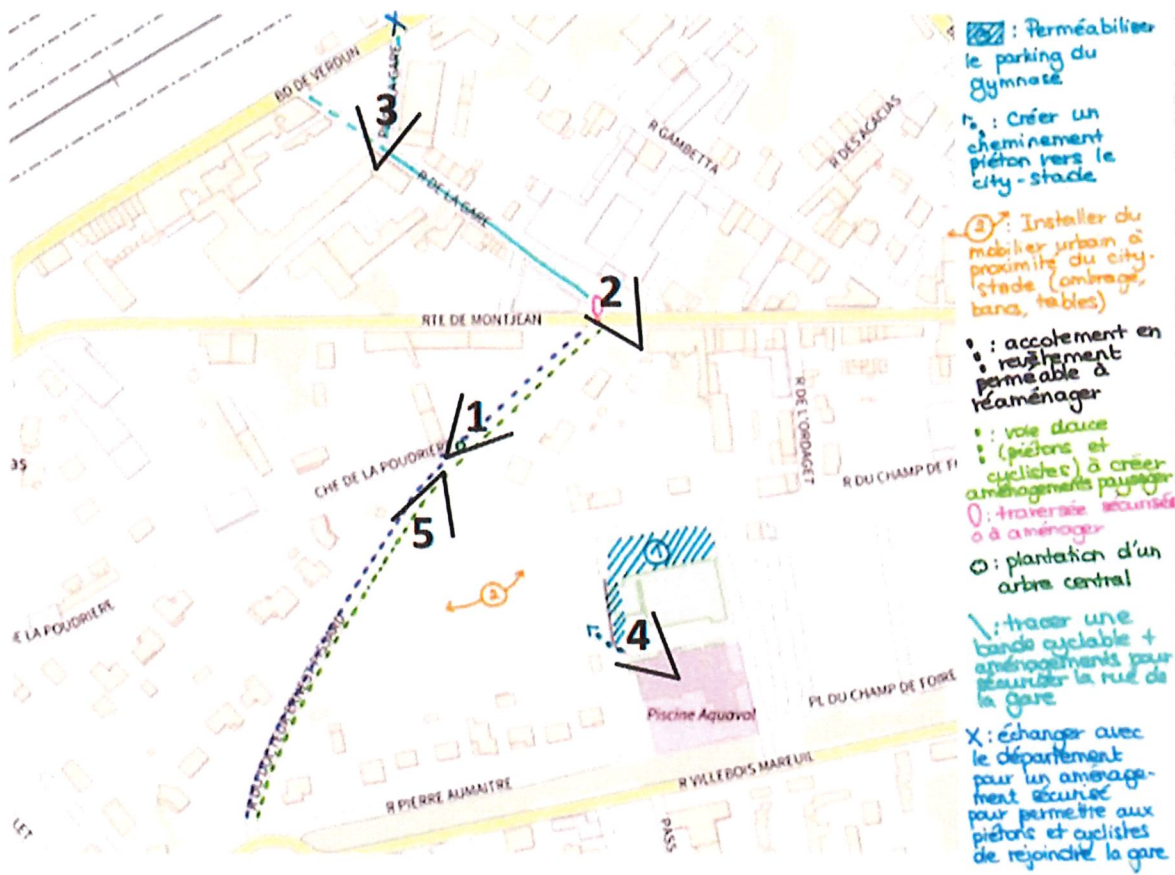 BD DE VERDUN
LA GARE
3
R GAMBETTA
R DES ACACIAS
R DE LA GARE
2
RTE DE MONTJEAN
1
CHE DE LA POUDRIÈRE
R DE L'ORDAGET
R DU CHAMP DE FI
5
1
2
E LA POUDRIERE
4
Piscine Aquavol
PL DU CHAMP DE FOIRE
R PIERRE AUMAITRE
R VILLEBOIS MAREUIL
PASS
LET
: Perméabiliser
le parking du
gymnase
: Créer un
cheminement
piéton vers le
city-stade
2 : Installer du
mobilier urbain à
proximité du city-
stade (ombragé,
bancs, tables)
: accotement en
revêtement
perméable à
réaménager
: voie douce
(piétons et
cyclistes) à créer
aménagements paysager
: traversée sécurisée
à aménager
: plantation d'un
arbre central
\ : tracer une
bande cyclable +
aménagements pour
sécuriser la rue de
la gare
X : échanger avec
le département
pour un aménage-
ment sécurisé
pour permettre aux
piétons et cyclistes
de rejoindre la gare